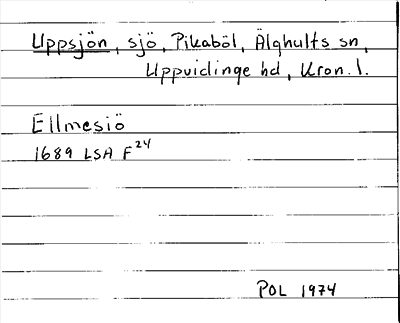 Uppsjön, sjö, Pikaböl, Älghults sn,
Uppvidinge hd, Kron. l.
Ellmesiö
1689 LSA F24
POL 1974